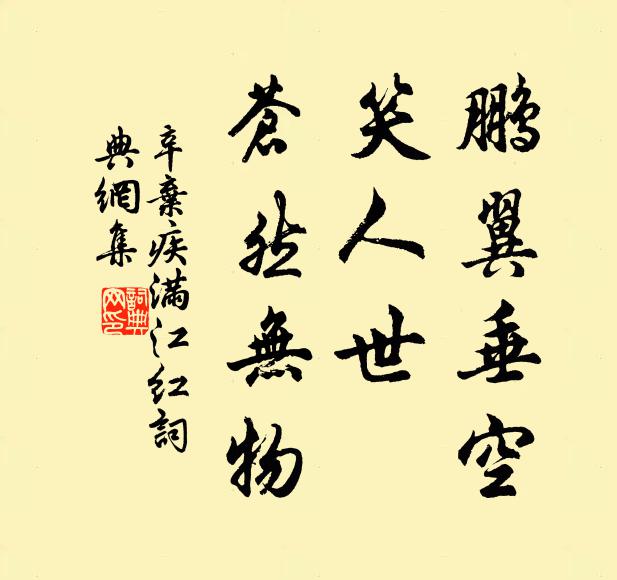 鵬翼垂空
笑人世
蒼然無物
辛棄疾滿江紅詞
典網集
詞典網印